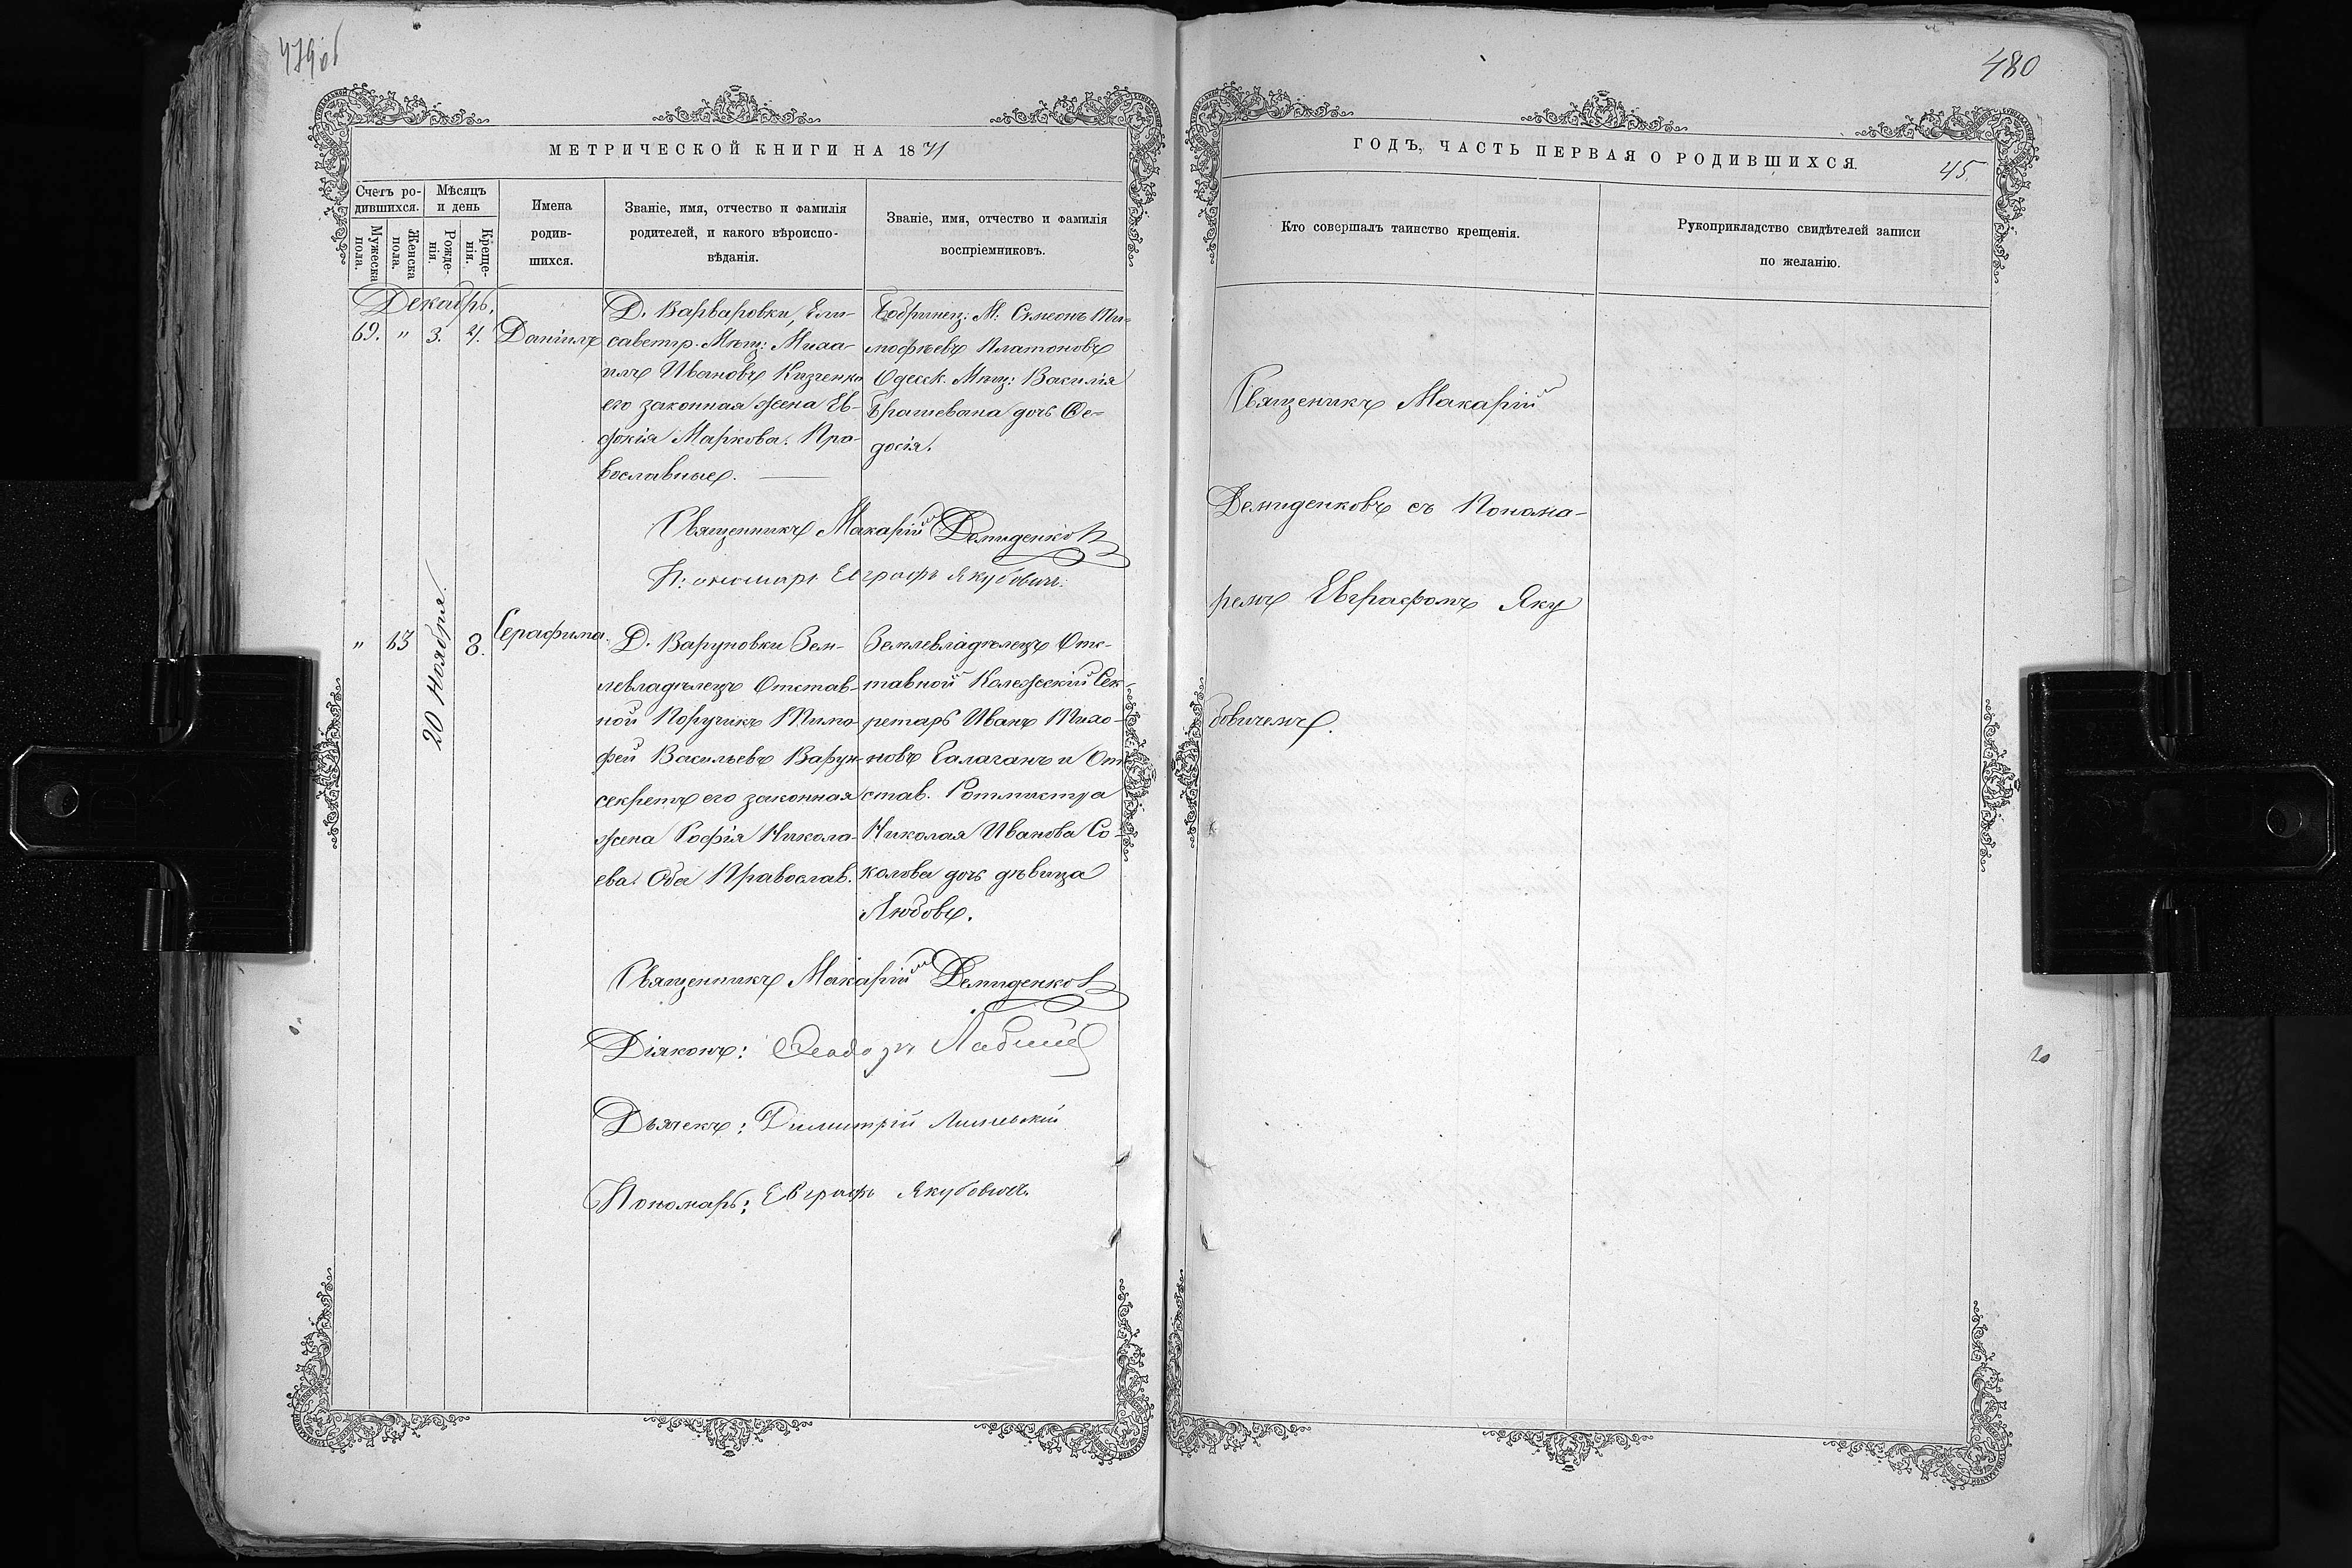 479об
МЕТРИЧЕСКОЙ КНИГИ НА 1871
Счетъ родившихся.
Мѣсяцъ и день
Мужеска пола.
Женска пола.
Рожденія.
Крещенія.
Имена родившихся.
Званіе, имя, отчество и фамилія родителей, и какого вѣроисповѣданія.
Званіе, имя, отчество и фамилія воспріемниковъ.
Декабрь.
69. " 3. 4. Даніилъ
Д. Варваровки, Ели-
саветгр. Мѣщ: Миха-
илъ Ивановъ
его законная жена Ев-
фокія Маркова. Пра-
вославные.
Бобринец: М: Симеонъ Ти-
мофѣевъ Платоновъ
Одесск. Мѣщ: Василія
дочь Ѳе-
досія.
Священникъ Макарій Демиденков
Пономарь Евграфъ Якубович.
" 63 20 Ноября. 8. Серафима.
Д. Варуновки Зем-
левладѣлецъ Отстав-
ной Поручикъ Тимо-
фей Васильевъ Варун-
секретъ его законная
жена Софія Никола-
ева. Оба Православ.
Землевладѣлецъ Отс-
тавной Колежскій Сек-
ретарь Иванъ Тихо-
новъ Галаганъ и От-
став. Ротмистра
Николая Иванова Со-
колова дочь дѣвица
Любовь.
Священникъ Макарій Демиденков
Діяконъ:
Дьячекъ: Димитрій
Пономарь: Евграфъ Якубовичъ.
480
ГОДЪ, ЧАСТЬ ПЕРВАЯ О РОДИВШИХСЯ.
45.
Кто совершалъ таинство крещенія.
Рукоприкладство свидѣтелей записи
по желанію.
Священикъ Макарій
Демиденковъ съ Понома-
ремъ Евграфомъ Яку
бовичемъ.